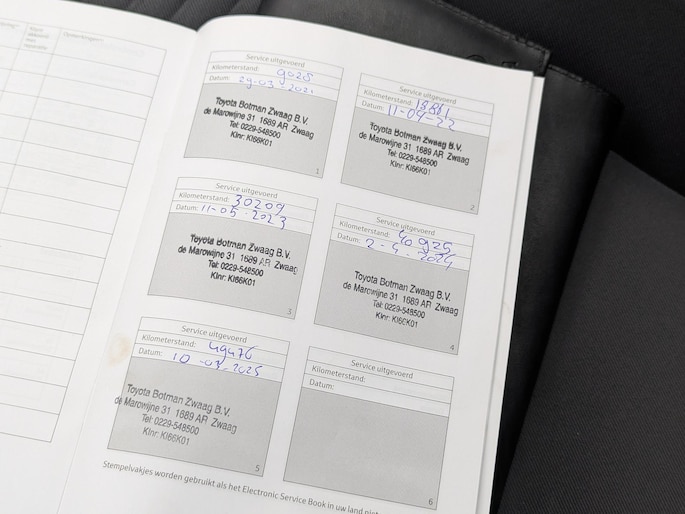 Opmerkingen:
Service uitgevoerd
Kilometerstand: 9028
Datum: 29-03-2021
Toyota Botman Zwaag B.V.
de Marowijne 31 1689 AR Zwaag
Tel: 0229-548500
Klnr: KI66K01
1
Service uitgevoerd
Kilometerstand: 18881
Datum: 11-04-22
Toyota Botman Zwaag B.V.
de Marowijne 31 1689 AR Zwaag
Tel: 0229-548500
Klnr: KI66K01
2
Service uitgevoerd
Kilometerstand: 30209
Datum: 11-05-2023
Toyota Botman Zwaag B.V.
de Marowijne 31 1689 AR Zwaag
Tel: 0229-548500
Klnr: KI66K01
3
Service uitgevoerd
Kilometerstand: 40925
Datum: 2-4-2024
Toyota Botman Zwaag B.V.
de Marowijne 31 1689 AR Zwaag
Tel: 0229-548500
Klnr: KI66K01
4
Service uitgevoerd
Kilometerstand: 49476
Datum: 10-03-2025
Toyota Botman Zwaag B.V.
de Marowijne 31 1689 AR Zwaag
Tel: 0229-548500
Klnr: KI66K01
5
Service uitgevoerd
Kilometerstand:
Datum:
6
Stempelvakjes worden gebruikt als het Electronic Service Book in uw land niet